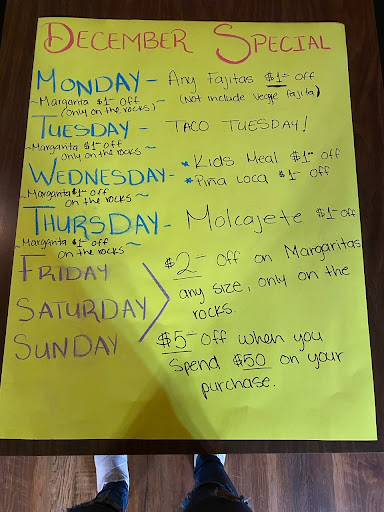 DECEMBER SPECIAL
MONDAY - Any Fajitas $1- off
~Margarita $1- off (Not include Veggie fajita)
(only on the rocks)~
TUESDAY - TACO TUESDAY!
~Margarita $1- off
only on the rocks~
WEDNESDAY - * Kids Meal $1- off
~Margarita $1- off * Piña Loca $1- off
on the rocks~
THURSDAY - Molcajete $1- off
~Margarita $1- off
on the rocks~
FRIDAY
SATURDAY
SUNDAY
$2- off on Margaritas
any size, only on the
rocks.
$5- off when you
spend $50 on your
purchase.